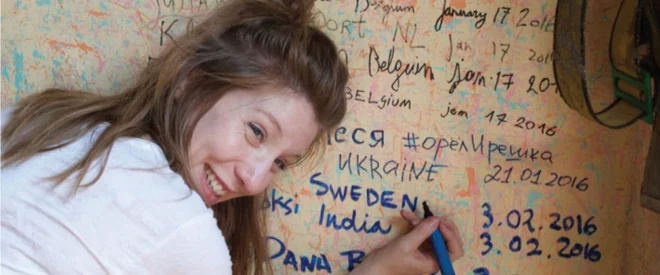 Belgium january 17 2016
ORT NL Jan 17 2016
Belgium jan 17 201
BELgium jan 17 2016
еся #орелИрешка
UKRAINE 21.01.2016
SWEDEN 3.02.2016
oksi India 3.02.2016
DANA